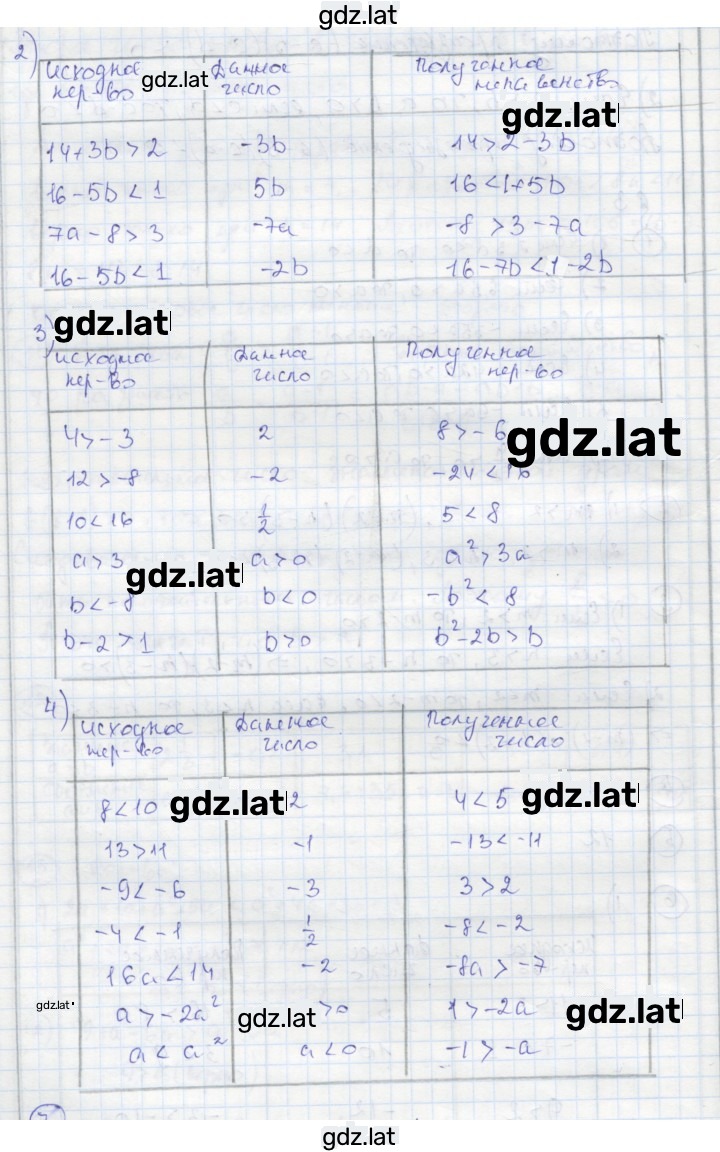 gdz.lat
2)
исходное Данное Полученное
нер-во gdz.lat число неравенство
gdz.lat
14+3b > 2 -3b 14 > 2-3b
16-5b < 1 5b 16 < 1+5b
7a-8 > 3 -7a -8 > 3-7a
16-5b < 1 -2b 16-7b < 1-2b
3) gdz.lat
исходное Данное Полученное
нер-во число нер-во
4 > -3 2 8 > -6
gdz.lat
12 > -8 -2 -24 < 16
10 < 16 1/2 5 < 8
a > 3 a > 0 a² > 3a
gdz.lat
b < -8 b < 0 -b² < 8
b-2 > 1 b > 0 b²-2b > b
4)
исходное Данное Полученное
нер-во число число
8 < 10 gdz.lat 2 4 < 5 gdz.lat
13 > 11 -1 -13 < -11
-9 < -6 -3 3 > 2
-4 < -1 1/2 -8 < -2
16a < 14 -2 -8a > -7
gdz.lat a > -2a² gdz.lat >0 1 > -2a gdz.lat
a < a² a < 0 -1 > -a
gdz.lat